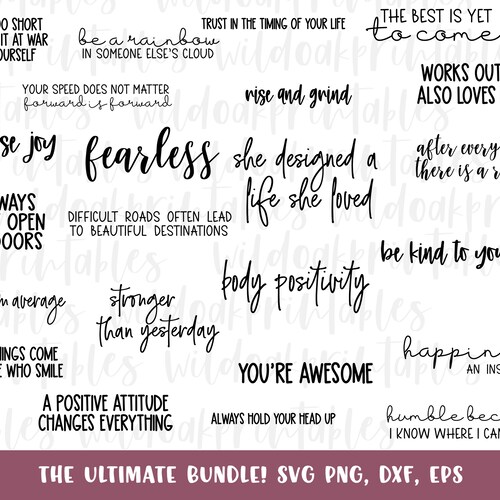 OO SHORT
IT AT WAR
OURSELF
be a rainbow
IN SOMEONE ELSE'S CLOUD
TRUST IN THE TIMING OF YOUR LIFE
THE BEST IS YET
to come
YOUR SPEED DOES NOT MATTER
forward is forward
rise and grind
WORKS OUT
ALSO LOVES
se joy
fearless
she designed a
life she loved
after every
there is a r
WAYS
OPEN
DOORS
DIFFICULT ROADS OFTEN LEAD
TO BEAUTIFUL DESTINATIONS
be kind to you
body positivity
m average
stronger
than yesterday
HINGS COME
E WHO SMILE
YOU'RE AWESOME
happin
AN INS
A POSITIVE ATTITUDE
CHANGES EVERYTHING
ALWAYS HOLD YOUR HEAD UP
humble bec
I KNOW WHERE I CAN
wildoakprintables
THE ULTIMATE BUNDLE! SVG PNG, DXF, EPS